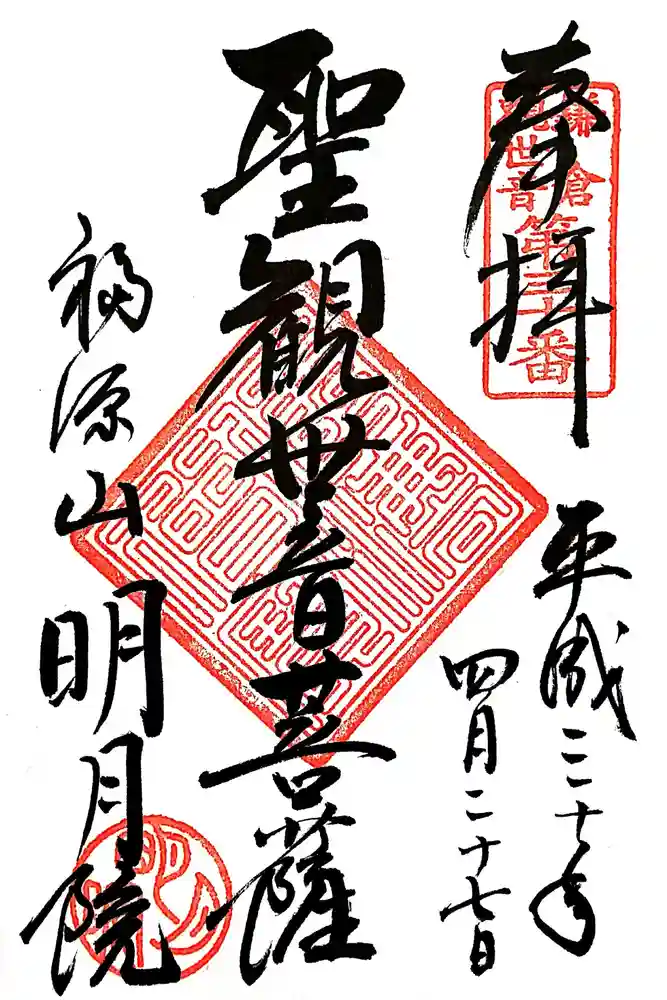 奉拝
鎌倉
観世音
第三十番
平成三十年
四月二十七日
聖観世音菩薩
福源山
明月院